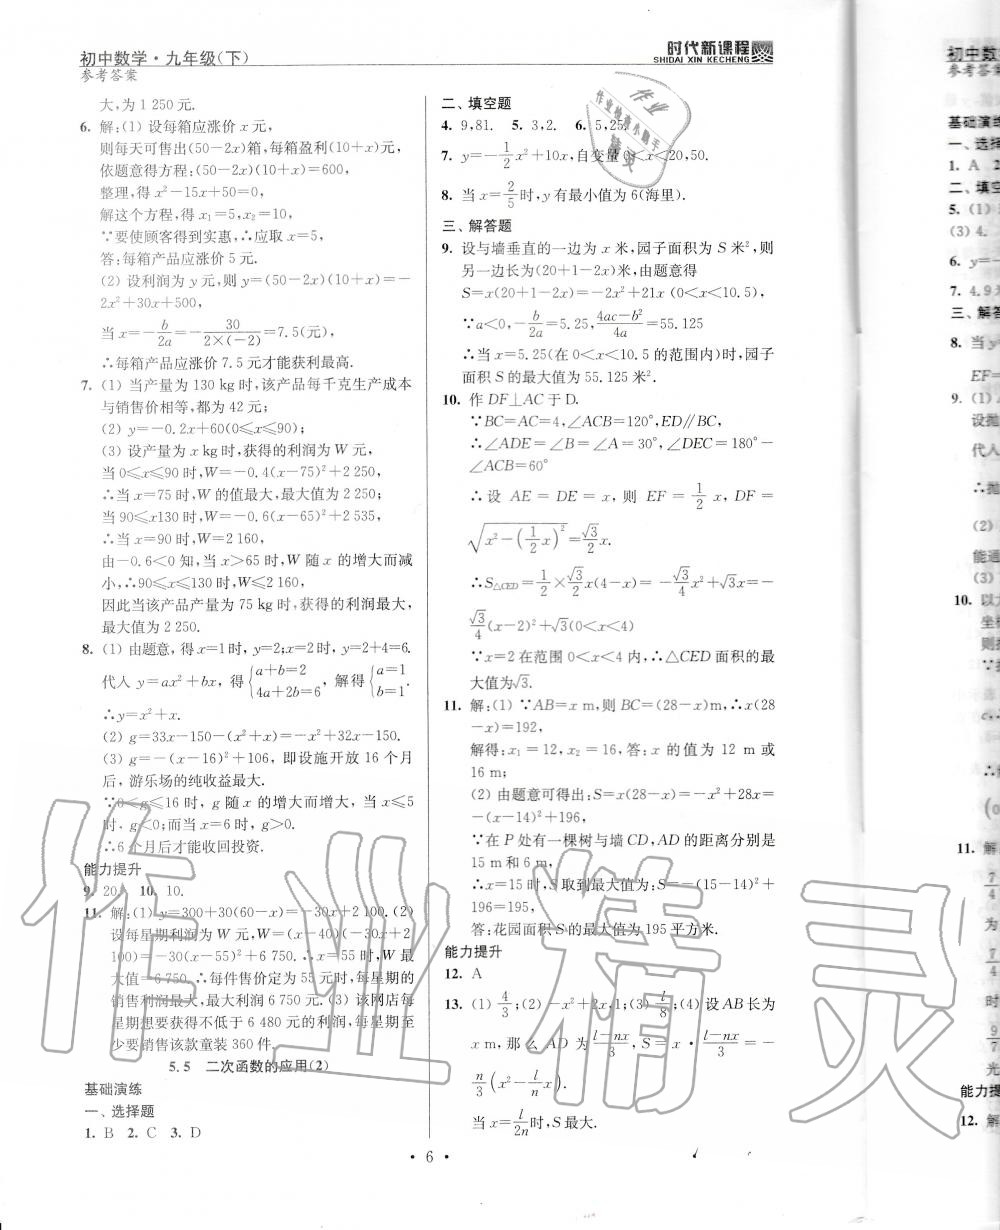 初中数学·九年级(下)
参考答案
时代新课程
SHIDAI XIN KECHENG
大,为1 250元.
6. 解:(1) 设每箱应涨价x元,
则每天可售出(50-2x)箱,每箱盈利(10+x)元,
依题意得方程:(50-2x)(10+x)=600,
整理,得x²-15x+50=0,
解这个方程,得x₁=5,x₂=10,
∵要使顾客得到实惠,∴应取x=5,
答:每箱产品应涨价5元.
(2) 设利润为y元,则y=(50-2x)(10+x)=-
2x²+30x+500,
当x=-b/2a=-30/(2×(-2))=7.5(元),
∴每箱产品应涨价7.5元才能获利最高.
7. (1) 当产量为130 kg时,该产品每千克生产成本
与销售价相等,都为42元;
(2) y=-0.2x+60(0≤x≤90);
(3) 设产量为x kg时,获得的利润为W元,
当0≤x≤90时,W=-0.4(x-75)²+2 250,
∴当x=75时,W的值最大,最大值为2 250;
当90≤x130时,W=-0.6(x-65)²+2 535,
∴当x=90时,W=2 160,
由-0.6<0知,当x>65时,W随x的增大而减
小,∴90≤x≤130时,W≤2 160,
因此当该产品产量为75 kg时,获得的利润最大,
最大值为2 250.
8. (1) 由题意,得x=1时,y=2;x=2时,y=2+4=6.
代入y=ax²+bx,得{a+b=2 4a+2b=6,解得{a=1 b=1.
∴y=x²+x.
(2) g=33x-150-(x²+x)=-x²+32x-150.
(3) g=-(x-16)²+106,即设施开放16个月
后,游乐场的纯收益最大.
∵0<g≤16时,g随x的增大而增大,当x≤5
时,g<0;而当x=6时,g>0.
∴6个月后才能收回投资.
能力提升
9. 20 10. 10.
11. 解:(1) y=300+30(60-x)=-30x+2 100.(2)
设每星期利润为W元,W=(x-40)(-30x+2
100)=-30(x-55)²+6 750.∴x=55时,W最
大值=6 750.∴每件售价定为55元时,每星期的
销售利润最大,最大利润6 750元.(3) 该网店每
星期想要获得不低于6 480元的利润,每星期至
少要销售该款童装360件.
5.5 二次函数的应用(2)
基础演练
一、选择题
1. B 2. C 3. D
二、填空题
4. 9,81. 5. 3,2. 6. 5,25.
7. y=-1/2x²+10x,自变量0<x<20,50.
8. 当x=2/5时,y有最小值为6(海里).
三、解答题
9. 设与墙垂直的一边为x米,园子面积为S米²,则
另一边长为(20+1-2x)米,由题意得
S=x(20+1-2x)=-2x²+21x (0<x<10.5),
∵a<0,-b/2a=5.25,(4ac-b²)/4a=55.125
∴当x=5.25(在0<x<10.5的范围内)时,园子
面积S的最大值为55.125米².
10. 作DF⊥AC于D.
∵BC=AC=4,∠ACB=120°,ED∥BC,
∴∠ADE=∠B=∠A=30°,∠DEC=180°-
∠ACB=60°
∴设AE=DE=x,则EF=1/2x,DF=
√(x²-(1/2x)²)=√3/2x.
∴S△CED=1/2×√3/2x(4-x)=-√3/4x²+√3x=-
√3/4(x-2)²+√3(0<x<4)
∵x=2在范围0<x<4内,∴△CED面积的最
大值为√3.
11. 解:(1) ∵AB=x m,则BC=(28-x)m,∴x(28
-x)=192,
解得:x₁=12,x₂=16,答:x的值为12 m或
16 m;
(2) 由题意可得出:S=x(28-x)=-x²+28x=
-(x-14)²+196,
∵在P处有一棵树与墙CD,AD的距离分别是
15 m和6 m,
∴x=15时,S取到最大值为:S=-(15-14)²+
196=195,
答:花园面积S的最大值为195平方米.
能力提升
12. A
13. (1) 4/3;(2) -x²+2x,1;(3) l/8;(4) 设AB长为
x m,那么AD为(l-nx)/3,S=x·(l-nx)/3=-
n/3(x²-l/n x).
当x=l/2n时,S最大.
·6·
初中数
参考答案
基础演练
一、选择
1. A
二、填空
5. (1)
(3) 4.
6. y=-
7. 4.9
三、解答
8. 当
EF=
9. (1)
设抛
代入
∴抛
(2)
能通
(3)
10. 以
坐标
则
11. 解
7/4
为
7/4
时
9/7
光
能力提升
12. 解
作业
作业检查小助手
精灵
作业精灵